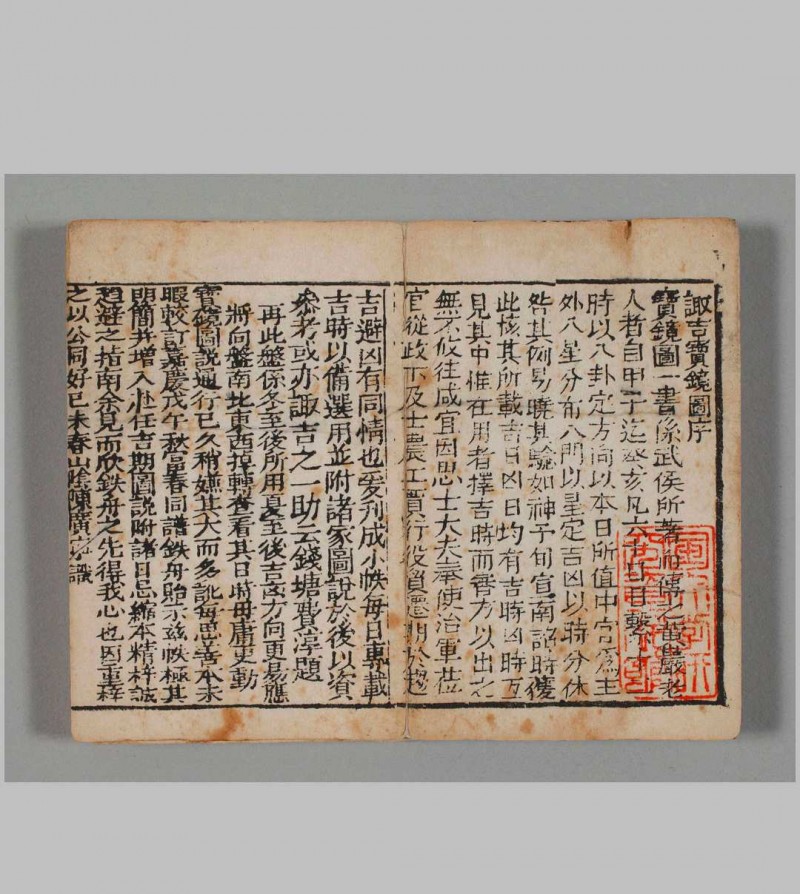 諏吉寶鏡圖序
寶鏡圖一書係武侯所著而傳之黃巖老
人者自甲子迄癸亥凡六十日日繫十二
時以八卦定方向以本日所值中宮爲主
外八星分布八門以星定吉凶以時分休
咎其例易曉其驗如神予旬宣南詔時獲
此核其所載吉日凶日均有吉時凶時互
見其中惟在用者擇吉時而審方以出之
無不攸往咸宜因思士大夫奉使治軍莅
官從政下及士農工賈行役貿遷期於趨
吉避凶有同情也爰刋成小帙每日專載
吉時以備選用並附諸家圖說於後以資
叅考或亦諏吉之一助云錢塘費淳題
再此盤係冬至後所用夏至後吉凶方向更易應
將向盤南北東西掉轉査看其日時毋庸更動
寶鏡圖說通行已久稍嫌其大而多訛每思善本未
暇較訂嘉慶戊午秋宦春同譜鉄舟貽示玆帙極其
明簡并增入赴任吉期圖說附諸日忌縮本精梓誠
趨避之指南余見而欣鉄舟之先得我心也因重梓
之以公同好己未春山陰陳廣寧識